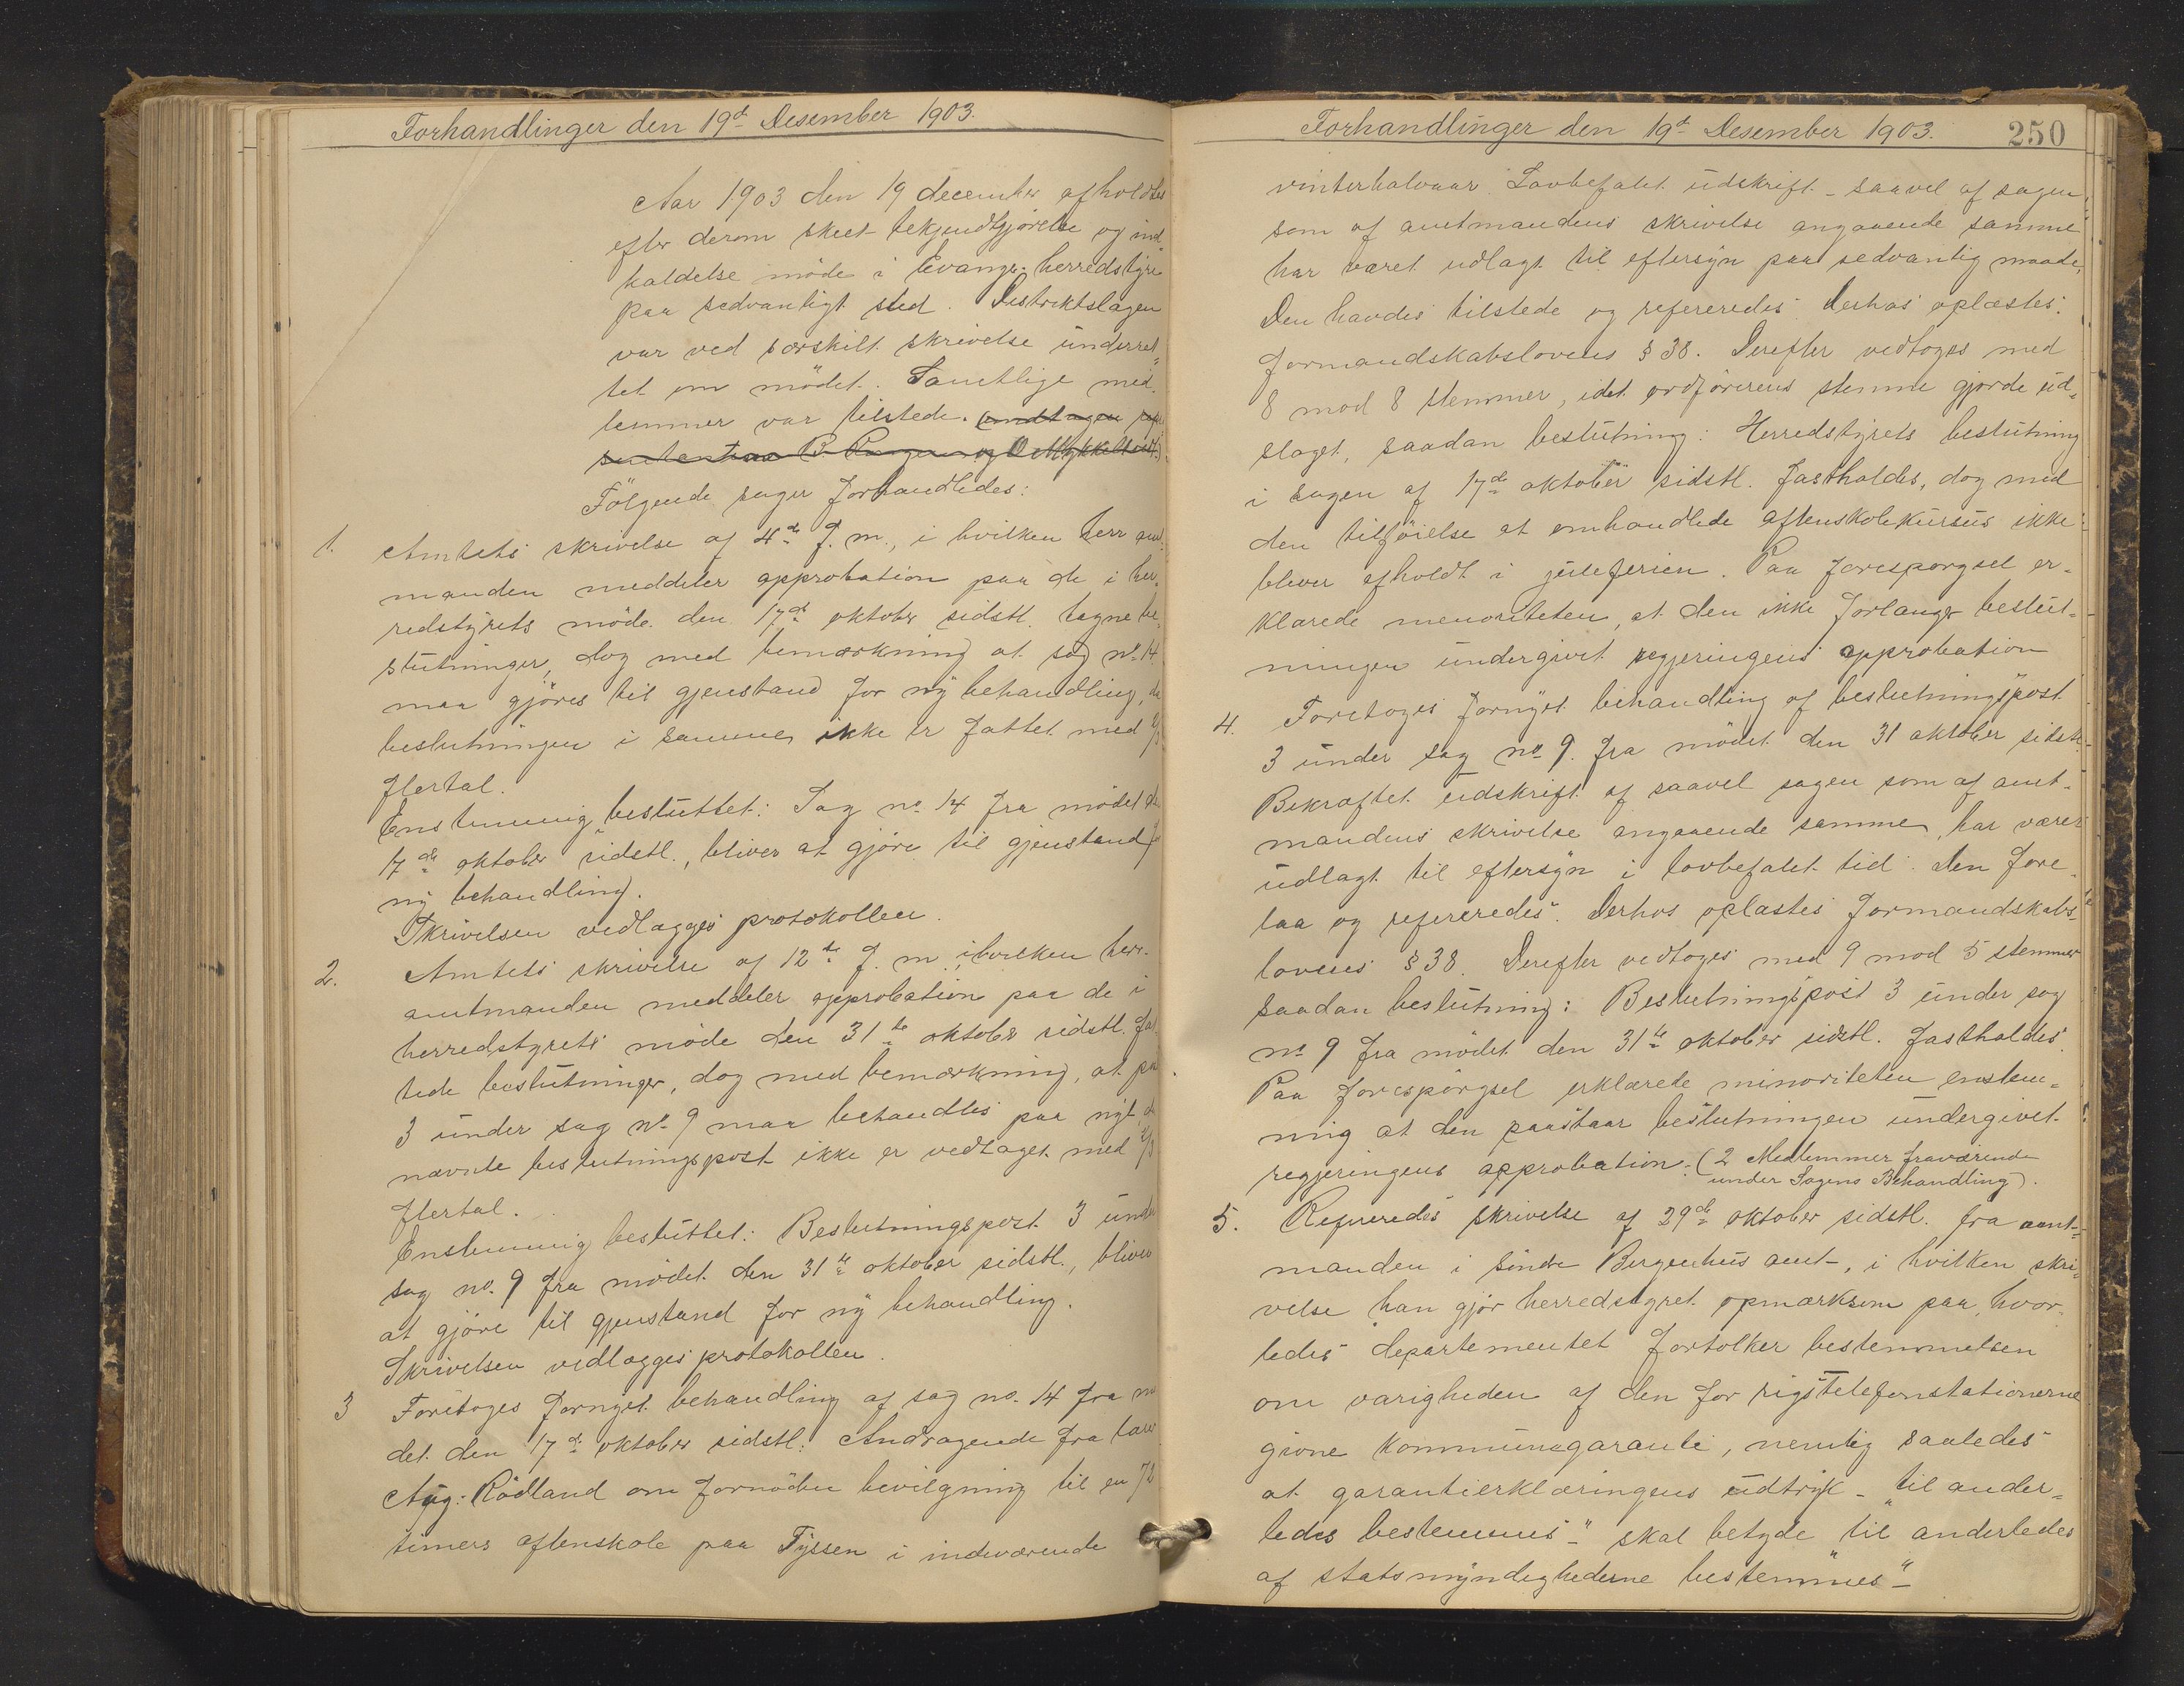 Forhandlinger den 19d Desember 1903.
Aar 1903 den 19 december afholdtes
efter derom skeet bekjendtgjørelse og ind-
kaldelse möde i Evanger herredstyre
paa sedvanligt sted. Distriktslægen
var ved særskilt skrivelse underret-
tet om mödet. Samtlige med-
lemmer var tilstede.
Fölgende sager forhandledes:
1. Amtets skrivelse af 4de d. m., i hvilken herr amt-
manden meddeler approbation paa de i her-
redstyrets möde den 17de oktober sidstl. tagne be-
slutninger, dog med bemærkning at sag no 14
maa gjöres til gjenstand for ny behandling, da
beslutningen i samme ikke er fattet med 2/3
flertal.
Enstemmig besluttet: Sag no. 14 fra mödet den
17de oktober sidstl., bliver at gjöre til gjenstand for
ny behandling.
Skrivelsen vedlægges protokollen.
2. Amtets skrivelse af 12te d. m. i hvilken herr
amtmanden meddeler approbation paa de i
herredstyrets möde den 31te oktober sidstl. fat-
tede beslutninger, dog med bemærkning, at post
3 under sag no 9 maa behandles paa nyt, da
nævnte beslutningspost ikke er vedtaget med 2/3
flertal.
Enstemmig besluttet: Beslutningspost 3 under
sag no. 9 fra mödet den 31te oktober sidstl., bliver
at gjöre til gjenstand for ny behandling.
Skrivelsen vedlægges protokollen.
3 Foretoges fornyet behandling af sag no. 14 fra mö-
det den 17de oktober sidstl: Andragende fra lærer
Aug: Rödland om fornöden bevilgning til en 72
timers aftenskole paa Tyssen i indeværende
Forhandlinger den 19d Desember 1903. 250
vinterhalvaar. Lovbefalet udskrift saavel af sagen
som af amtmandens skrivelse angaaende samme
har været udlagt til eftersyn paa sedvanlig maade,
Den havdes tilstede og refereredes. Derhos oplæstes
formandskabslovens § 38. Derefter vedtoges med
8 mod 8 stemmer, idet ordförerens stemme gjorde ud-
slaget, saadan beslutning: Herredstyrets beslutning
i sagen af 17de oktober sidstl. fastholdes, dog med
den tilföielse at omhandlede aftenskolekursus ikke
bliver afholdt i juleferien. Paa forespørgsel er-
klærede menoriteten, at den ikke forlanger beslut-
ningen undergivet regjeringens approbation
4. Foretoges fornyet behandling af beslutningspost
3 under sag no 9. fra mödet den 31 oktober sidstl.
Bekræftet udskrift af saavel sagen som af amt-
mandens skrivelse angaaende samme, har været
udlagt til eftersyn i lovbefalet tid. Den fore-
laa og refereredes. Derhos oplæstes formandskabs-
lovens § 38. Derefter vedtoges med 9 mod 5 stemmer
saadan beslutning: Beslutningspost 3 under sag
no 9 fra mödet den 31te oktober sidstl. fastholdes.
Paa forespörgsel erklærede minoriteten enstem-
mig at den paastaar beslutningen undergivet
regjeringens approbation. (2 Medlemmer fraværende
under Sagens Behandling).
5. Refereredes skrivelse af 29de oktober sidstl. fra amt-
manden i söndre Bergenhus amt, i hvilken skri-
velse han gjör herredstyret opmærksom paa, hvor-
ledes departementet fortolker bestemmelsen
om varigheden af den for rigstelefonstationerne
givne kommunegaranti, nemlig saaledes
at garantierklæringens udtryk - "til ander-
ledes bestemmes" - skal betyde "til anderledes
af statsmyndighederne bestemmes" -